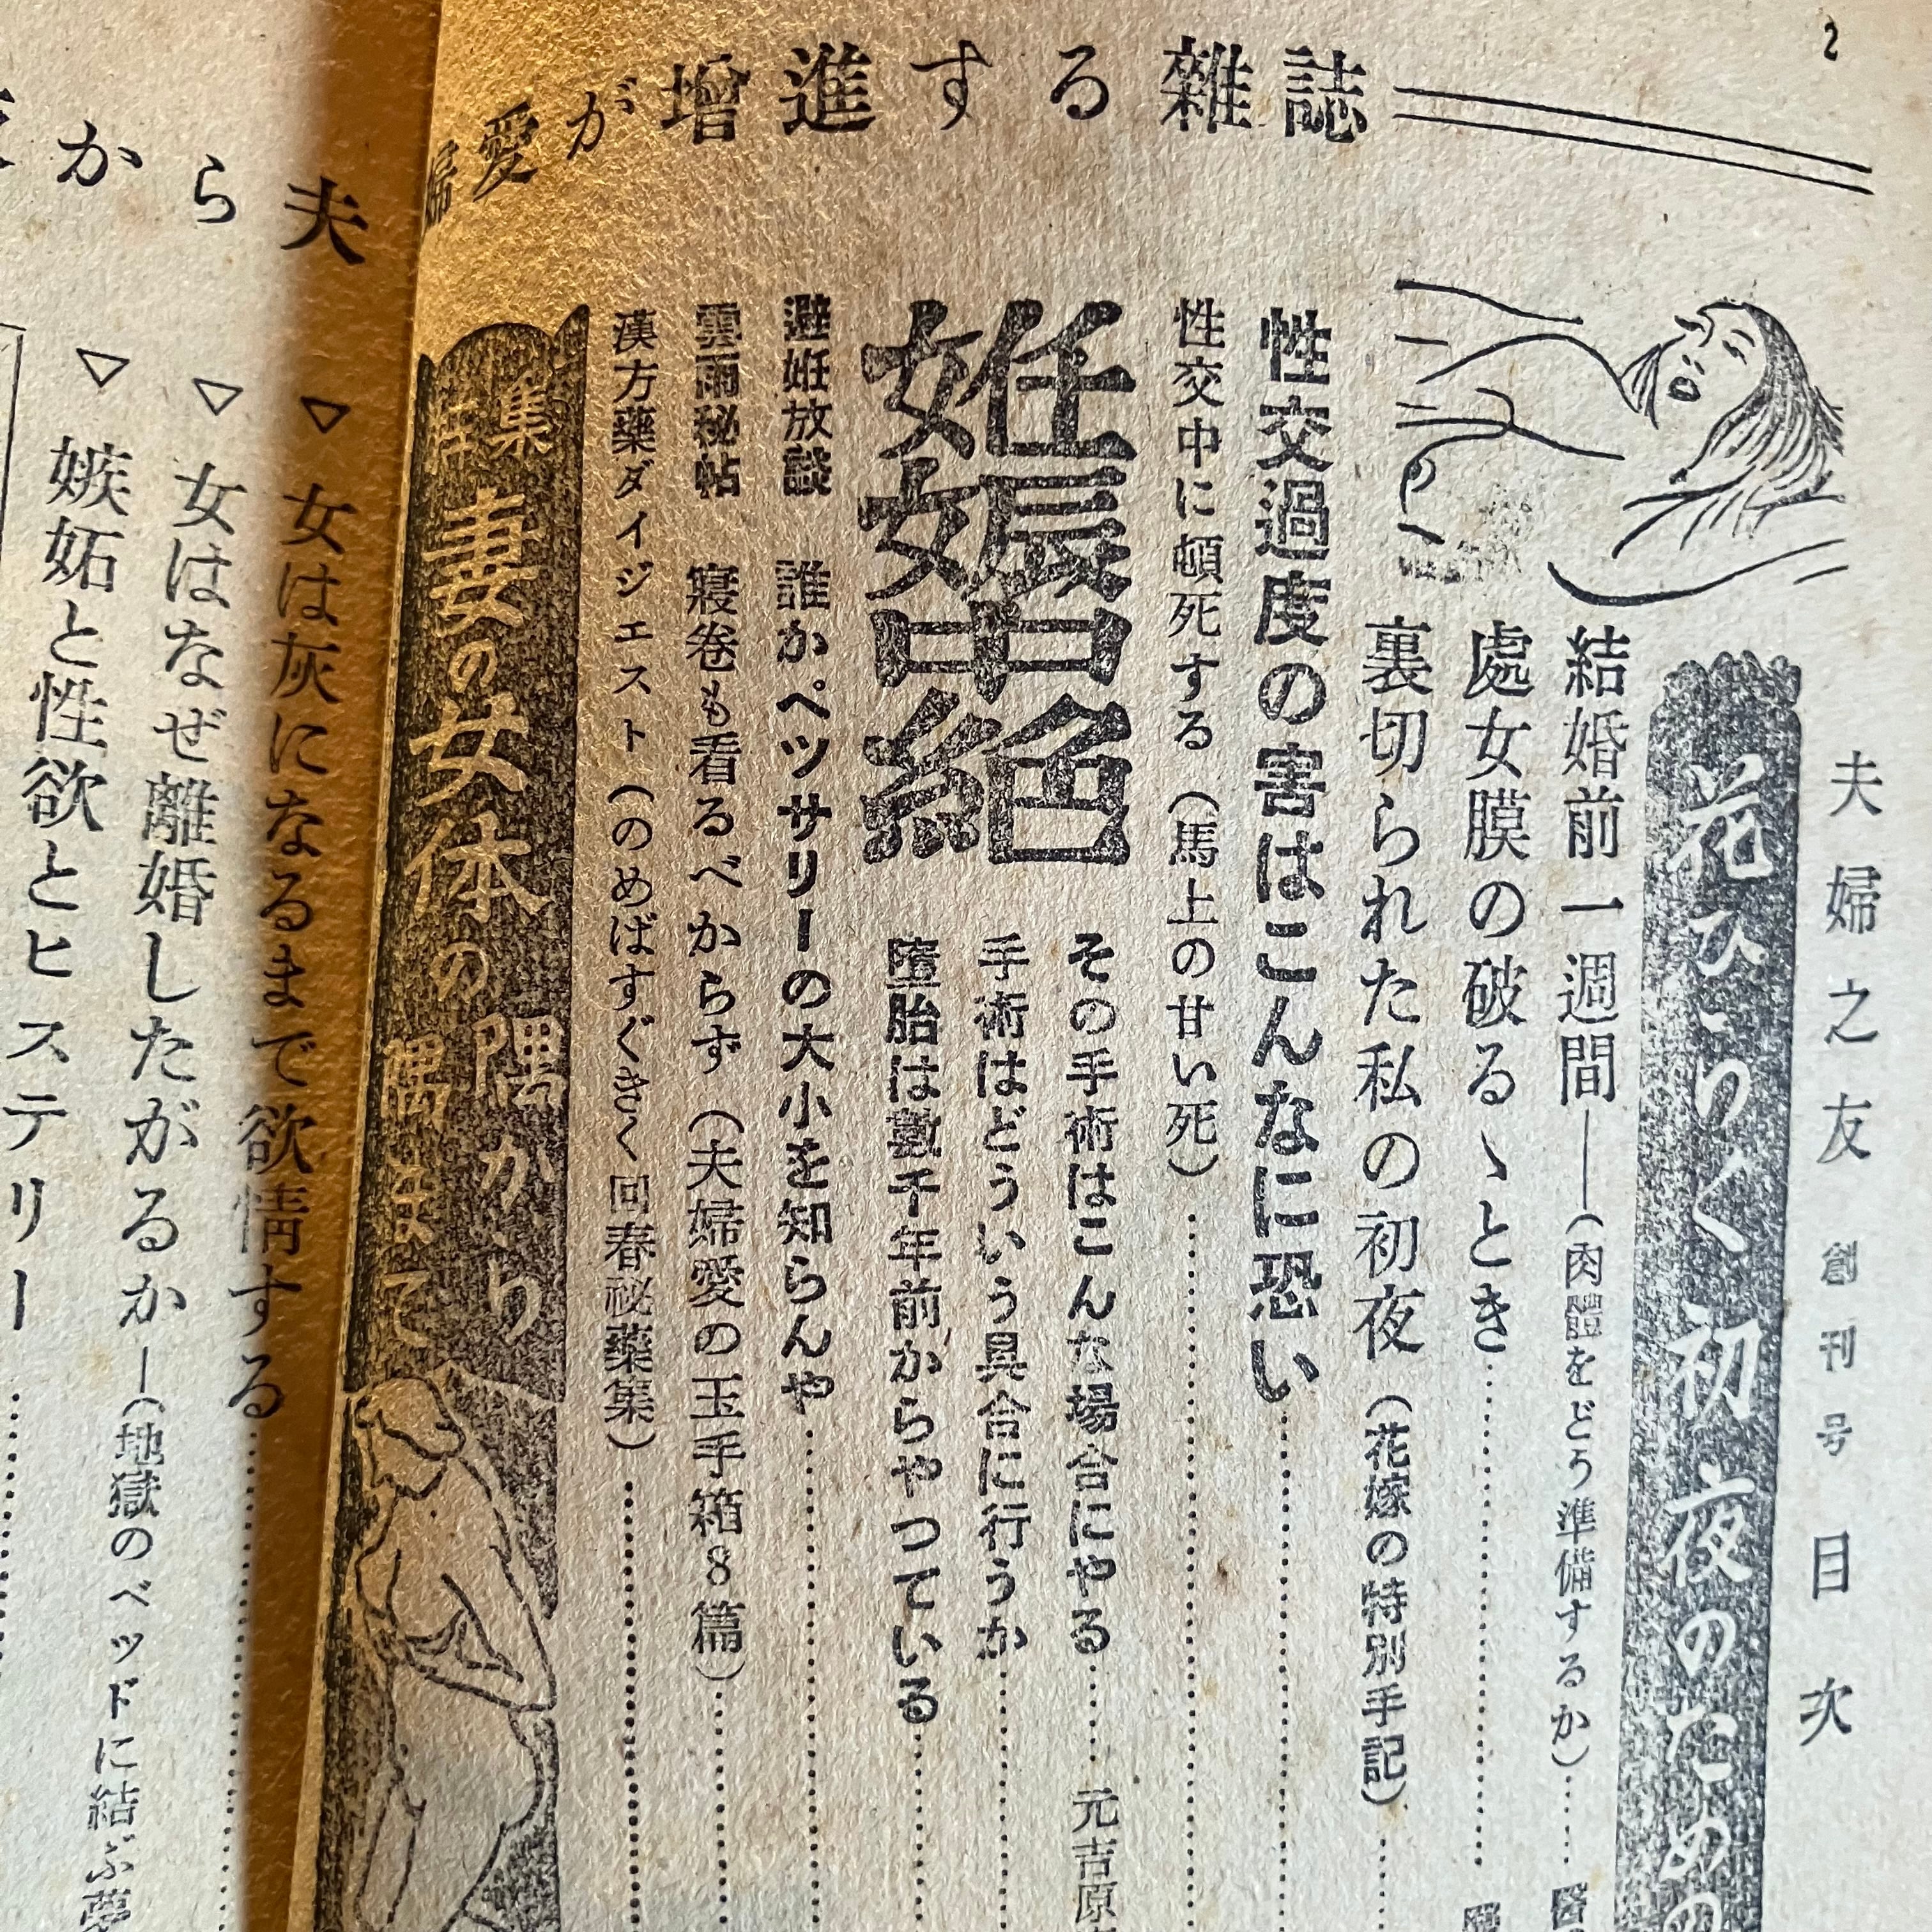 2
愛が增進する雜誌
夫婦之友 創刊号 目次
花ひらく初夜のための
結婚前一週間——(肉體をどう準備するか)
處女膜の破るゝとき
裏切られた私の初夜(花嫁の特別手記)
性交過度の害はこんなに恐い
性交中に頓死する(馬上の甘い死)
妊娠中絕
その手術はこんな場合にやる 元吉原
手術はどういう具合に行うか
墮胎は數千年前からやつている
避妊放談 誰かペツサリーの大小を知らんや
雲雨秘帖 寢卷も看るべからず(夫婦愛の玉手箱8篇)
漢方藥ダイジエスト(のめばすぐきく回春秘藥集)
集
妻の女体の
隅から
隅まで
から夫
▽女は灰になるまで欲情する
▽女はなぜ離婚したがるか—(地獄のベッドに結ぶ夢
▽嫉妬と性欲とヒステリー